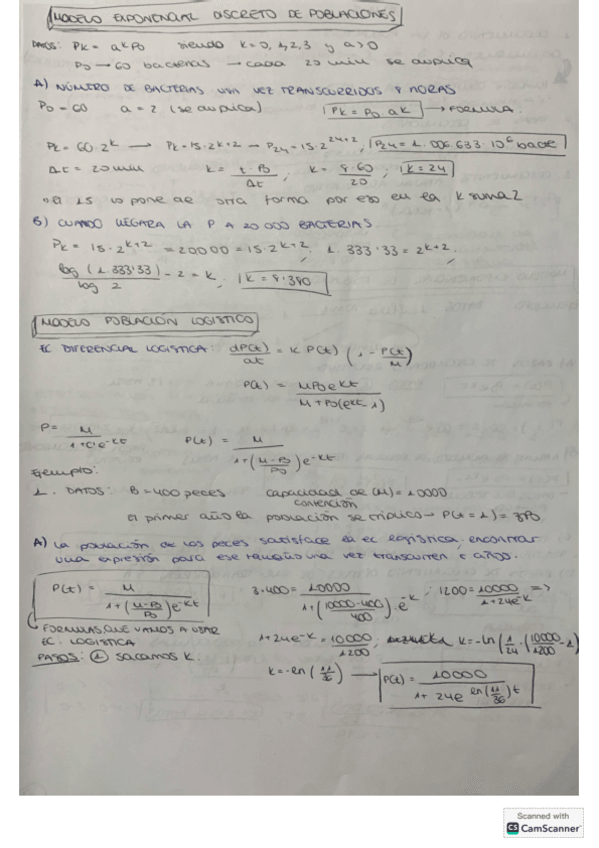 MODELO EXPONENCIAL DISCRETO DE POBLACIONES
DATOS: Pk = a^k P0 siendo k=0,1,2,3 y a>0
P0 → 60 bacterias → cada 20 min se duplica
A) NÚMERO DE BACTERIAS UNA VEZ TRANSCURRIDOS 8 HORAS
P0 = 60 a = 2 (se duplica) Pk = P0 · a^k → FORMULA.
Pk = 60·2^k → Pk = 15·2^k+2 → P24 = 15·2^24+2, P24 = 1.006.633·10^6 bacte
Δt = 20 min k = t·P0/Δt ; k = 8·60/20 ; k = 24
el 15 lo pone de otra forma por eso en la k suma 2
B) CUANDO LLEGARA LA P A 20 000 BACTERIAS
Pk = 15·2^k+2 = 20000 = 15·2^k+2 ; 1.333'33 = 2^k+2.
log (1.333'33)/log 2 − 2 = k. ; k = 8'380
MODELO POBLACIÓN LOGISTICO
EC DIFERENCIAL LOGISTICA: dP(t)/dt = K P(t) (1 − P(t)/M)
P(t) = M P0 e^kt / M + P0(e^kt − 1)
P = M / 1+C·e^-kt P(t) = M / 1+(M−P0/P0)e^-kt
Ejemplo:
1. DATOS: P0 = 400 peces capacidad de (M) = 10000
contención
el primer año la población se triplico → P(t=1) = 3P0
A) La población de los peces satisface en ec logística, encontrar
una expresión para ese tamaño una vez transcurren t años.
P(t) = M / 1+(M−P0/P0)e^-kt 3·400 = 10000 / 1+(10000−400/400)·e^-k ; 1200 = 10000/1+24e^-k =>
FORMULAS QUE VAMOS A USAR
EC. LOGISTICA 1+24e^-k = 10000/1200 ; k = −ln(1/24·(10000/1200 − 1)
PASOS: ① sacamos K.
k = −ln (11/36) → P(t) = 10000 / 1+ 24e^ln(11/36)t
Scanned with
CS CamScanner